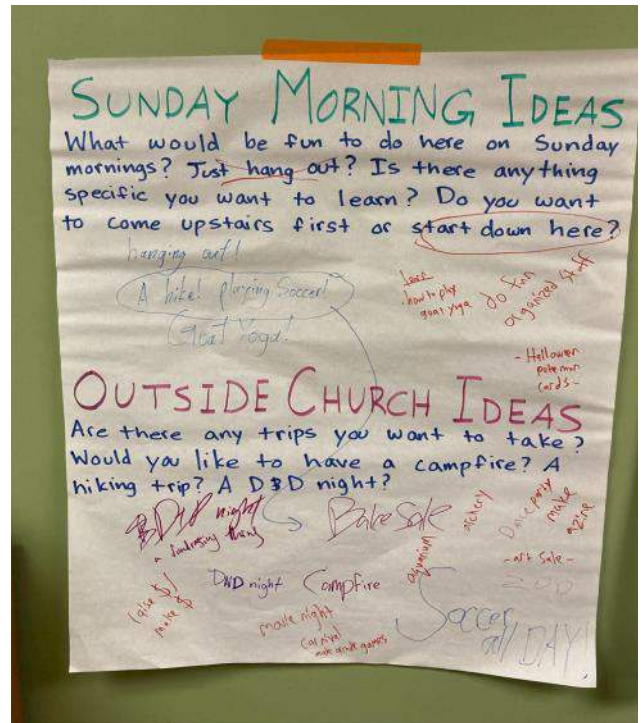 SUNDAY MORNING IDEAS
What would be fun to do here on Sunday
mornings? Just hang out? Is there anything
specific you want to learn? Do you want
to come upstairs first or start down here?
hanging out!
A hike! playing Soccer!
Goat Yoga!
learn
how to play
goat yoga
do fun
organized stuff
- Hallowen
pokemon
cards -
OUTSIDE CHURCH IDEAS
Are there any trips you want to take?
Would you like to have a campfire? A
hiking trip? A D&D night?
night
a fundraising thing
Bake Sale
archery
Dance party
make
a zine
aquarium
- art sale -
ZOO
DND night
Campfire
raise $/
make $
movie night
Carnival
make arcade games
Soccer
all DAY!